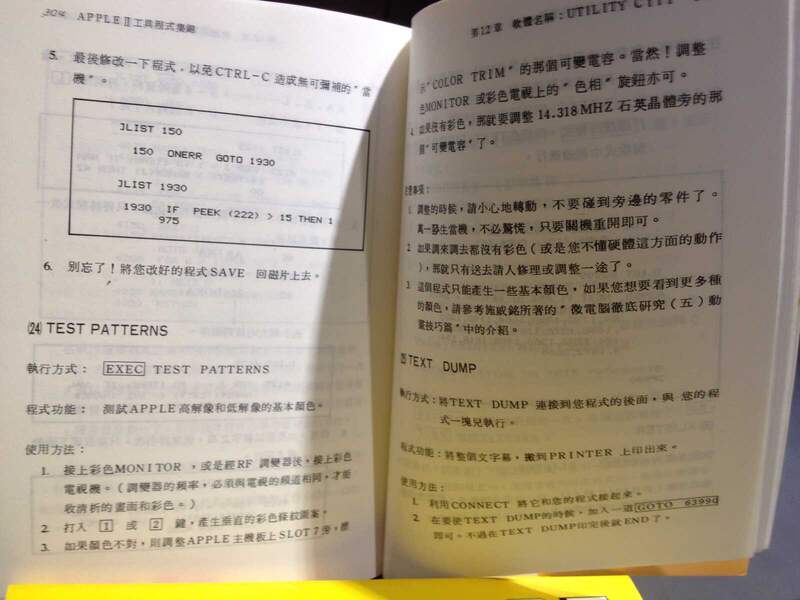 304 APPLE II工具程式集錦
5. 最後修改一下程式，以免CTRL-C 造成無可彌補的"當
機"。
JLIST 150
150 ONERR GOTO 1930
JLIST 1930
1930 IF PEEK (222) > 15 THEN 1
975
6. 別忘了！將您改好的程式SAVE 回磁片上去。
(24) TEST PATTERNS
執行方式： EXEC TEST PATTERNS
程式功能： 測試APPLE高解像和低解像的基本顏色。
使用方法：
1. 接上彩色MONITOR ，或是經RF 調變器後，接上彩色
電視機。（調變器的頻率，必須與電視的頻道相同，才能
收清析的畫面和彩色。）
2. 打入 1 或 2 鍵，產生垂直的彩色條紋圖案。
3. 如果顏色不對，則調整APPLE主機板上SLOT 7旁，標
第12章 軟體名稱：UTILITY CITY
示"COLOR TRIM" 的那個可變電容。當然！調整
色MONITOR 或彩色電視上的"色相"旋鈕亦可。
4. 如果沒有彩色，那就要調整 14.318MHZ 石英晶體旁的那
個"可變電容"了。
注意事項：
1. 調整的時候，請小心地轉動，不要碰到旁邊的零件了。
萬一發生當機，不必驚慌，只要關機重開即可。
2. 如果調來調去都沒有彩色（或是您不懂硬體這方面的動作
），那就只有送去請人修理或調整一途了。
3. 這個程式只能產生一些基本顏色，如果您想要看到更多種
的顏色，請參考施威銘所著的"微電腦徹底研究（五）動
畫技巧篇"中的介紹。
(25) TEXT DUMP
執行方式：將TEXT DUMP 連接到您程式的後面，與 您的程
式一塊兒執行。
程式功能：將整個文字幕，搬到PRINTER 上印出來。
使用方法：
1. 利用CONNECT 將它和您的程式接起來。
2. 在要使TEXT DUMP的時候，加入一道GOTO 63990
即可。不過在TEXT DUMP印完後就END了。